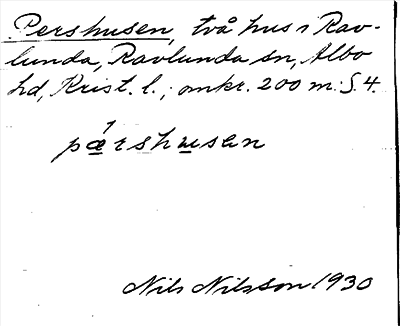 Pershusen, två hus i Rav-
lunda, Ravlunda sn, Albo
hd, Krist. l.; omkr. 200 m. S. 4.
pærshusen
Nils Nilsson 1930